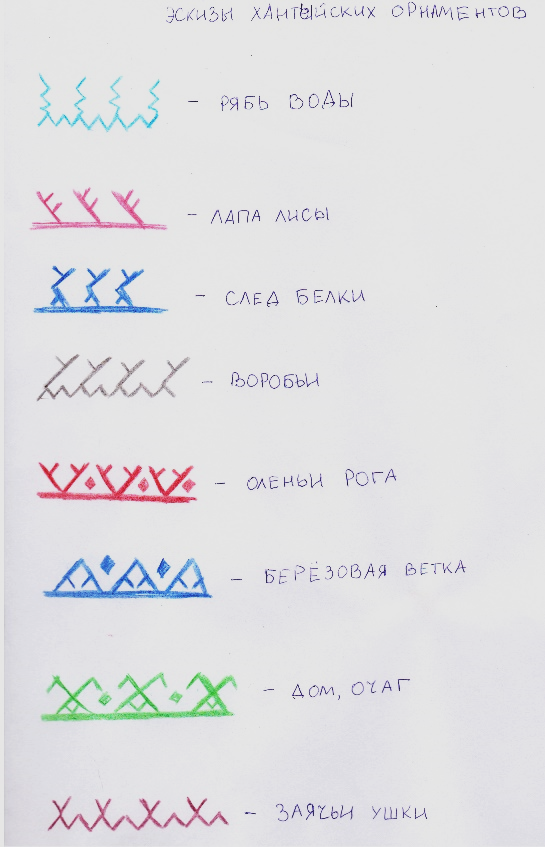 ЭСКИЗЫ ХАНТЫЙСКИХ ОРНАМЕНТОВ
- РЯБЬ ВОДЫ
- ЛАПА ЛИСЫ
- СЛЕД БЕЛКИ
- ВОРОБЬИ
- ОЛЕНЬИ РОГА
- БЕРЁЗОВАЯ ВЕТКА
- ДОМ, ОЧАГ
- ЗАЯЧЬИ УШКИ